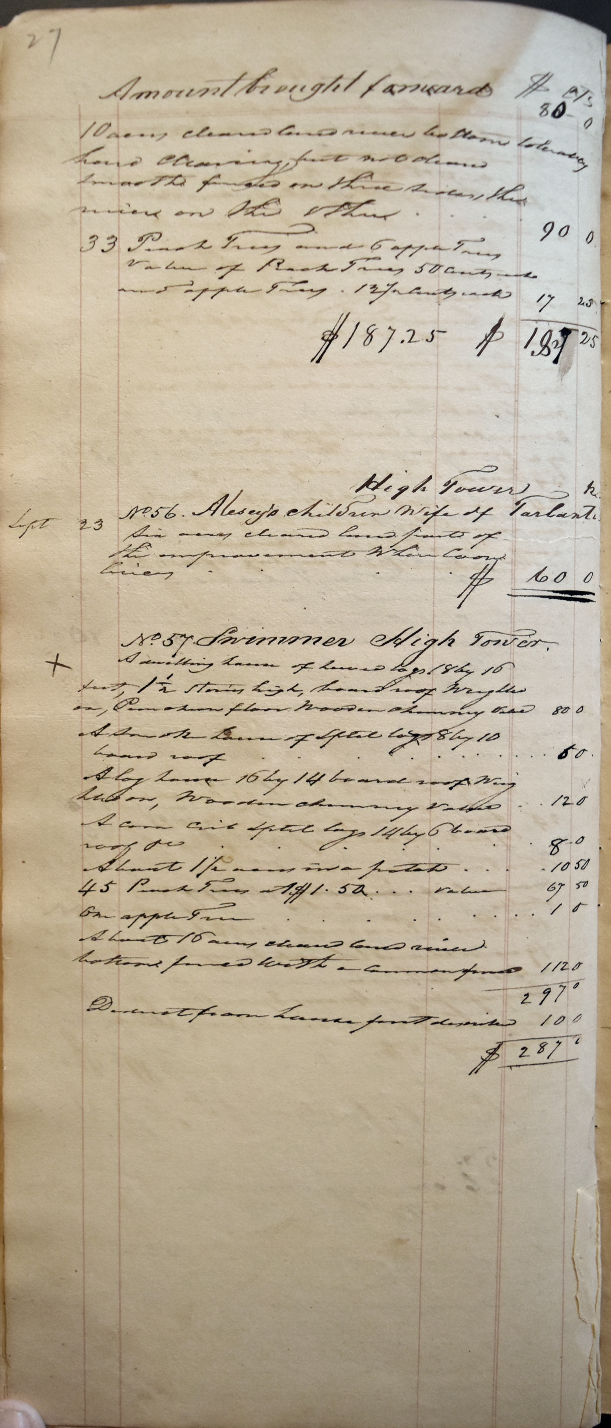 27
Amount brought forward $ cts
80 0
10 acres cleared land river bottom tolerably
hard clearing, but not cleared
smooth fenced on three sides, the
river on the other . . .
90 0
33 Peach Trees and 6 apple Trees
value of Peach Trees 50 cents each
and apple Trees . 12½ cents each
17 25
$187.25 $ 187 25
High Tower
Sept 23 No 56. Alesey's children Wife of
Six acres cleared land part of
the improvement Where
lives . . $ 60 0
No 57 Swimmer High Tower.
+ A dwelling house of hewed logs 18 by 16
feet, 1½ stories high, board roof Weighted
on, Puncheon floor Wooden chimney value 80 0
A Smoke house of split logs 8 by 10
board roof . . . . . . . 5 0
A log house 16 by 14 board roof Weig
hted on, Wooden chimney value . . 12 0
A corn crib split logs 14 by 6 board
roof &c . . . . . . 8 0
About 1½ acres in a patch . . . . 10 50
45 Peach Trees at $1.50 . . . value 67 50
One apple Tree . . . . . . . 1 0
About 16 acres cleared land river
bottom, fenced With a common fence 112 0
297 0
Deduct from house first described 10 0
$ 287 0